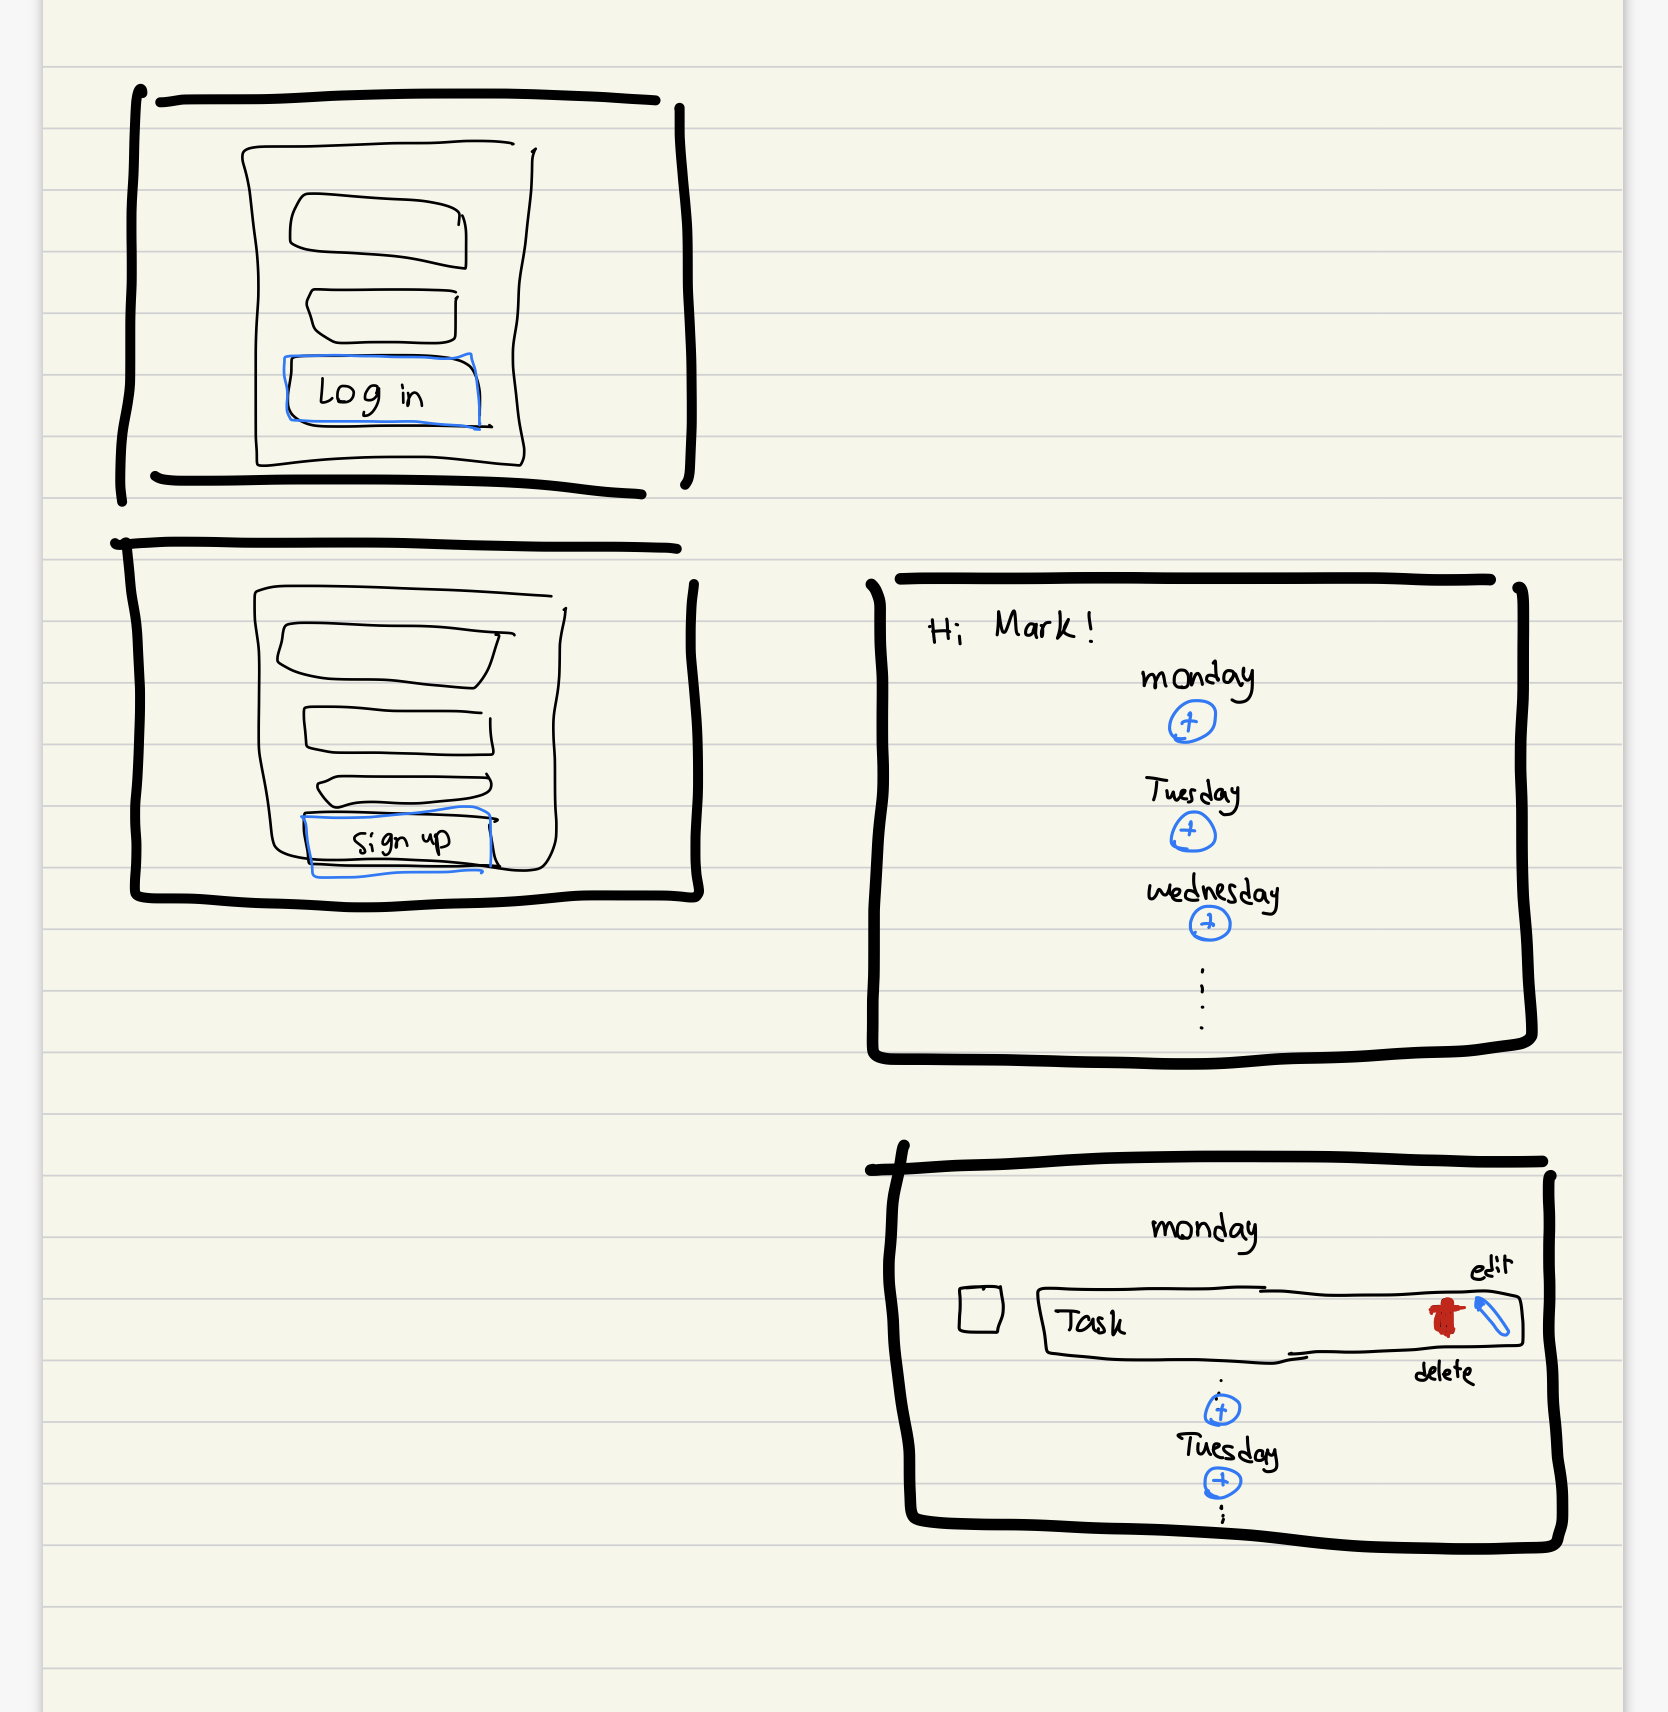 Log in
Sign up
Hi, Mark!
monday
+
Tuesday
+
wednesday
+
monday
edit
Task
delete
+
Tuesday
+